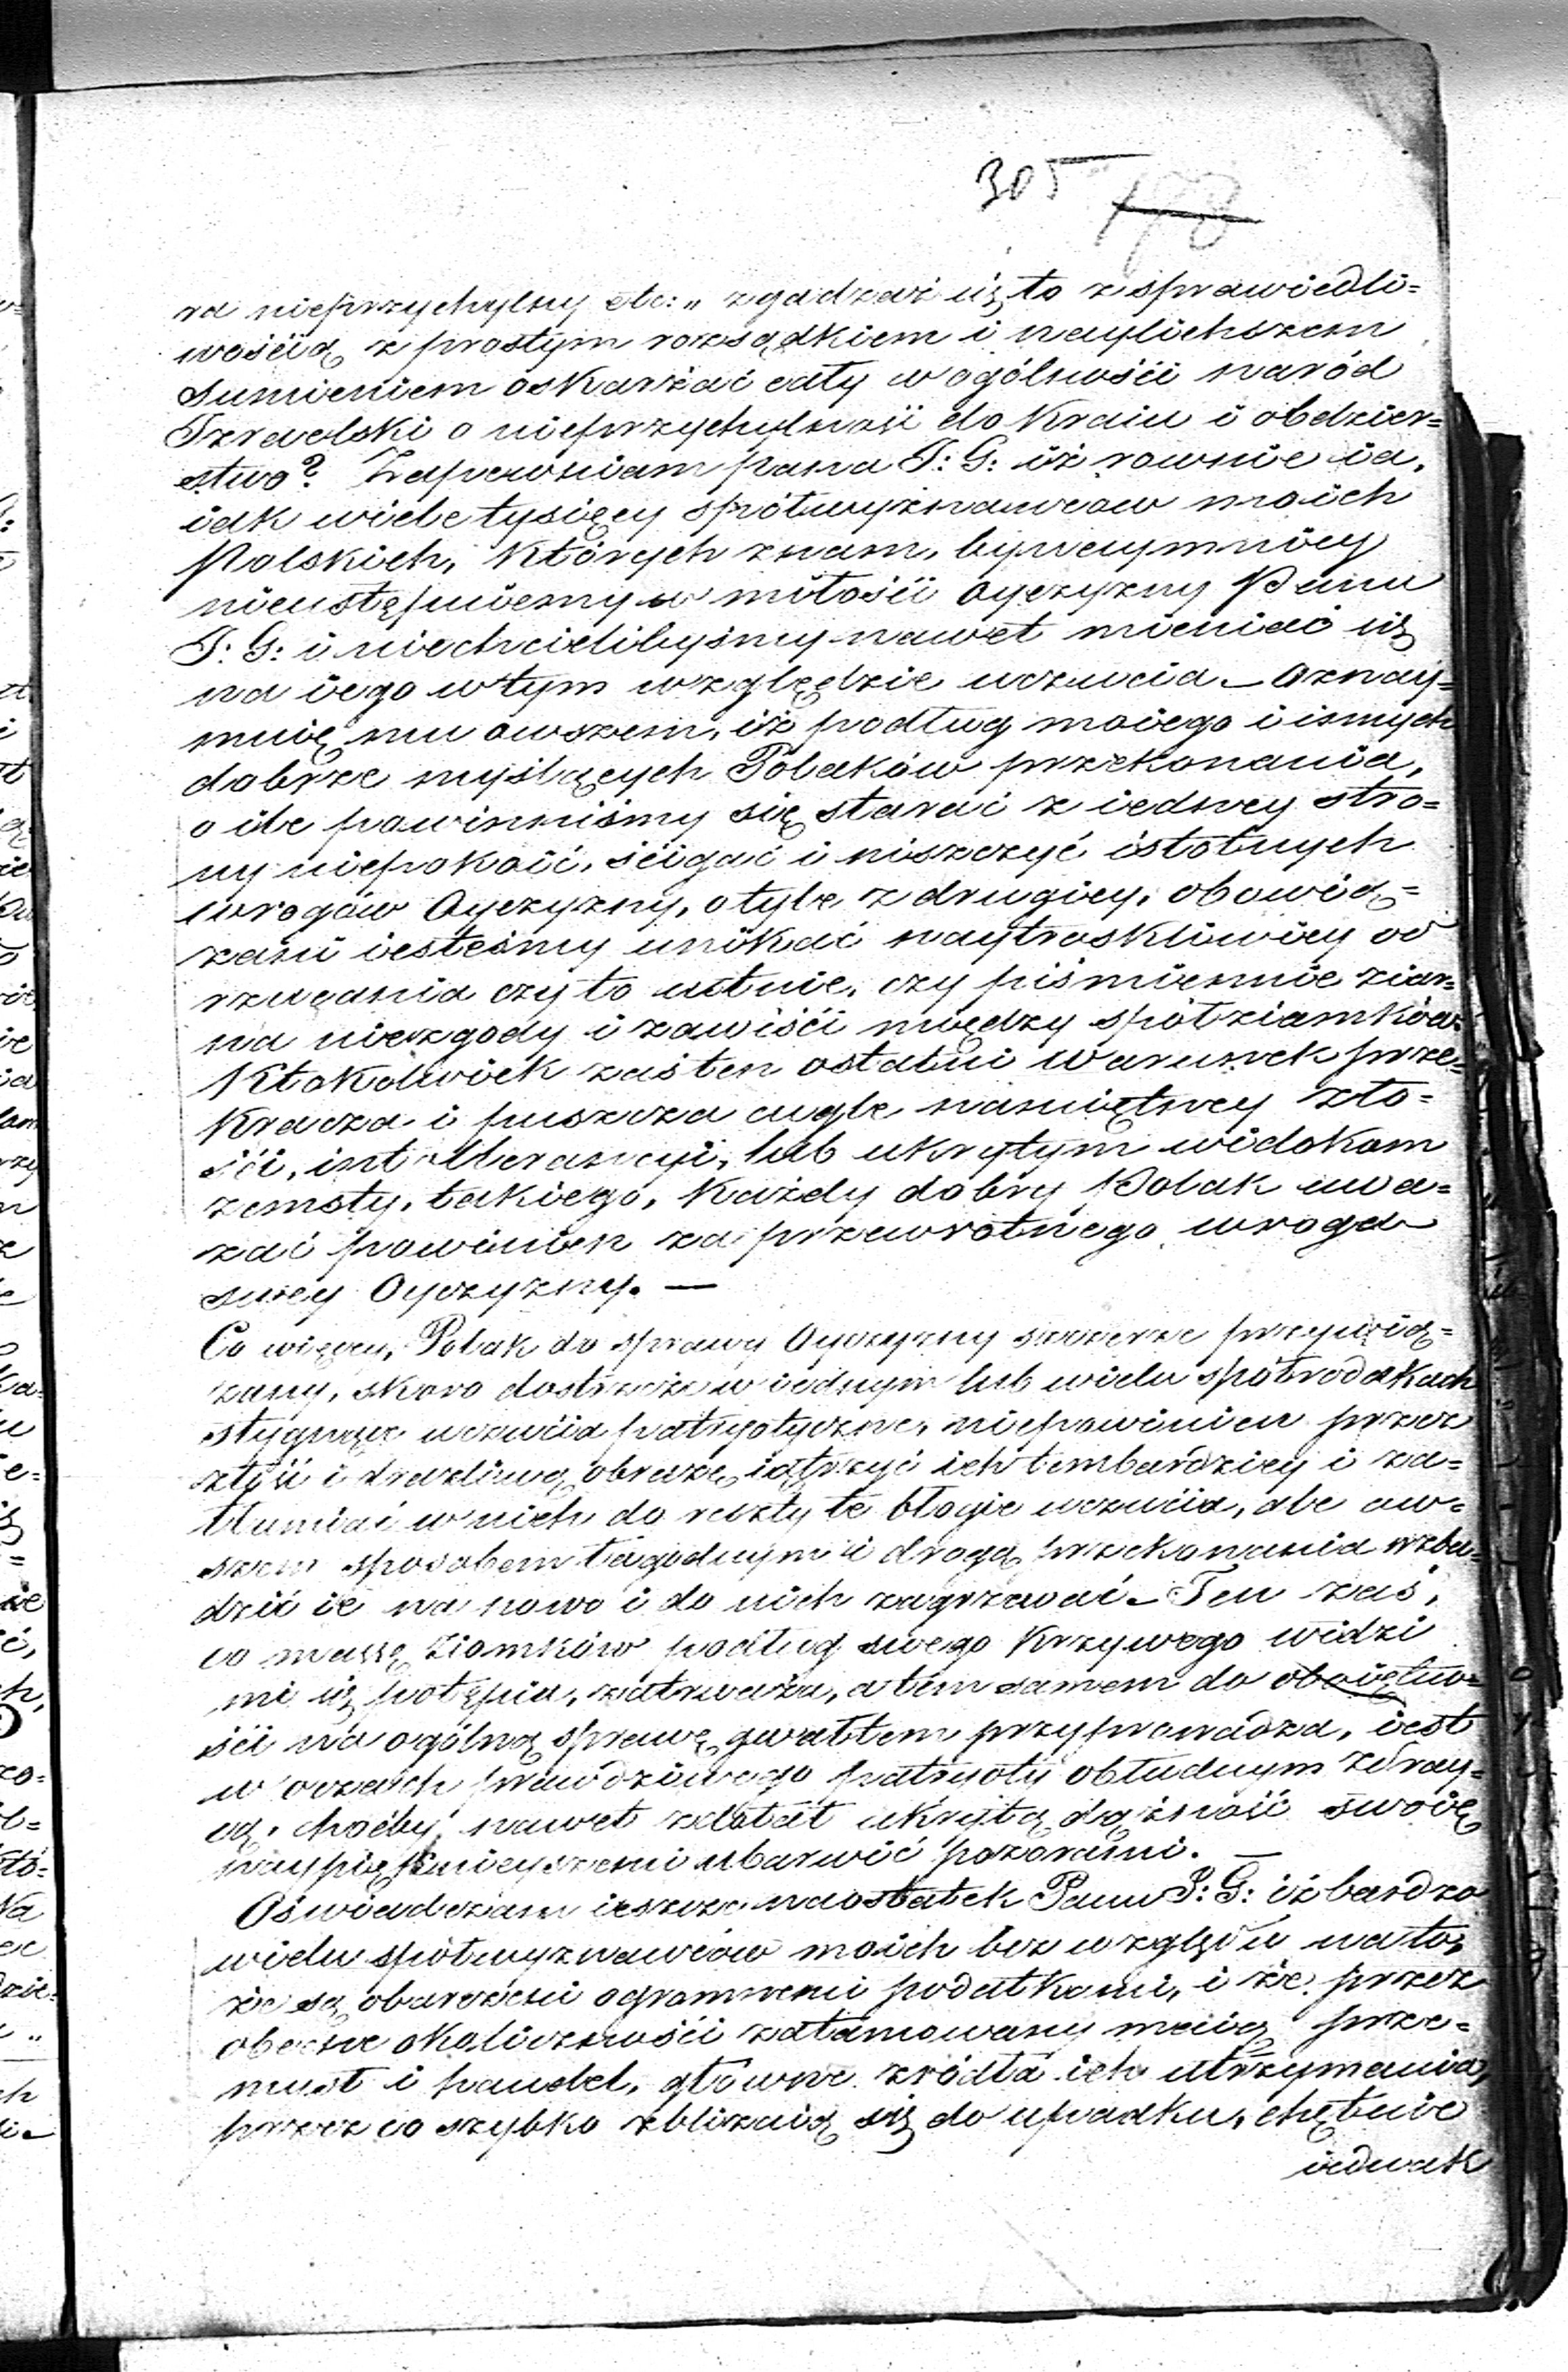 305 198
ra nieprzychylny etc: „ zgadzać się to z sprawiedli=
wością z prostym rozsądkiem i naylichszem
sumieniem oskarżać cały w ogólności naród
Izraelski o nieprzychylność do Kraiu i obdzier=
stwo? Zapewniam pana J: G: iż rownie ia,
iak wiele tysięcy spółwyznawców moich
Polskich, których znam, bynaymniey
nieustępuiemy w miłości Oyczyzny Panu
J: G: i niechcielibyśmy nawet mieniać się
na iego w tym względzie uczucia – oznay=
muię mu owszem, iż podług moiego i innych
dobrze myślących Polaków przekonania,
o ile powinniśmy się starać z iedney stro=
ny niepokoić, ścigać i niszczyć istotnych
wrogów Oyczyzny, o tyle z drugiey, obowią=
zani iesteśmy unikać naytroskliwiey od
rzucania czy to ustnie, czy piśmiennie ziar=
na niezgody i zawiści między spółziomków
Ktokolwiek zaś ten ostatni warunek prze=
kracza i puszcza cugle namiętney zło=
ści, intollerancyi, lub ukrytym widokom
zemsty, takiego, Każdy dobry Polak uwa=
żać powinien za przewrotnego wroga
swey Oyczyzny. —
Co więcey, Polak do sprawy Oyczyzny szczerze przywią=
zany, skoro dostrzeże w iednym lub wielu spółrodakach
stygnące uczucia patryotyczne, niepowinien przez
złość i drażliwą obrazę iątrzyć ich tembardziey i za=
tłumiać w nich do reszty te błogie uczucia, ale ow=
szem sposobem łagodnym i drogą przekonania wzbu=
dzić ie na nowo i do nich zagrzewać – Ten zaś,
co massę Ziomków podług swego Krzywego widzi
mi się potępia, zatrważa, a tém samem do oboiętno=
ści na ogólną sprawę gwałtem przyprowadza, iest
w oczach prawdziwego patryoty obłudnym zdray=
cą, choćby nawet zdołał ukrytą dążność swoię
naypięknieyszemi ubarwić pozorami. —
Oświadczam ieszcze naostatek Panu J: G: iż bardzo
wielu spółwyznawców moich bez względu na to,
że są obarczeni ogromnemi podatkami, i że przez
obecne okoliczności zatamowany maią prze=
mysł i handel, główne zródła ich utrzymania,
przez co szybko zbliżaią się do upadku, chętnie
iednak